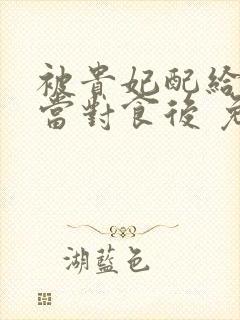 被貴妃配給
當對食後
湖藍色